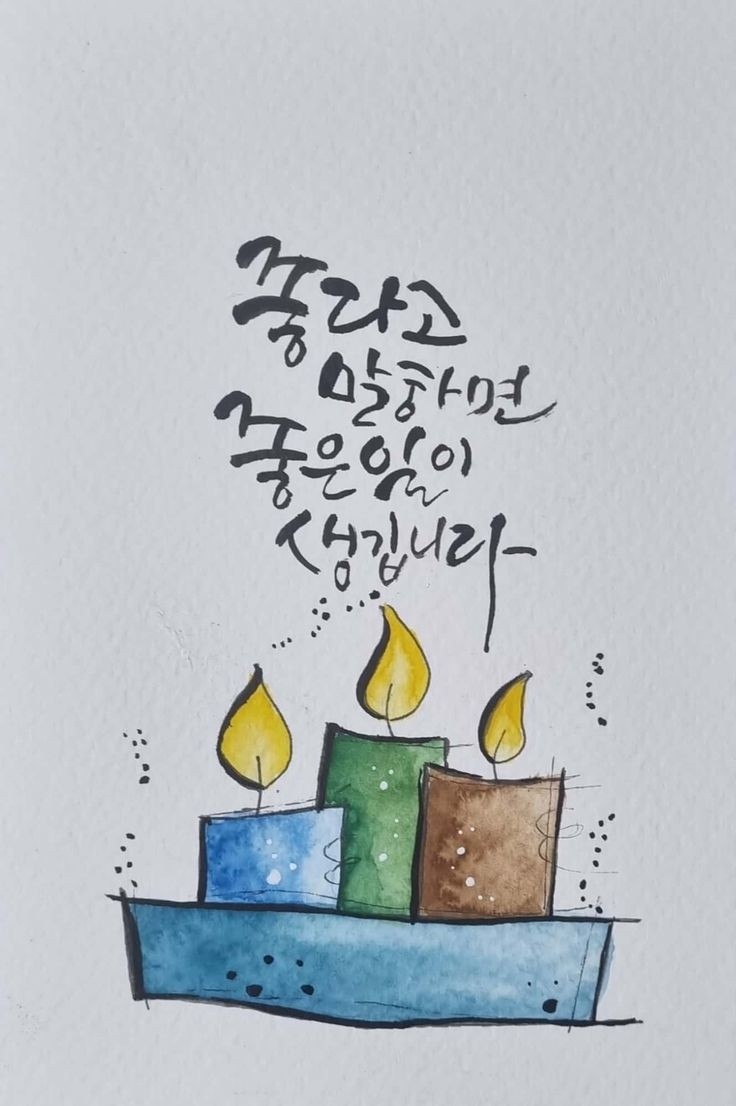 좋라고
말하면
좋은일이
생깁니다